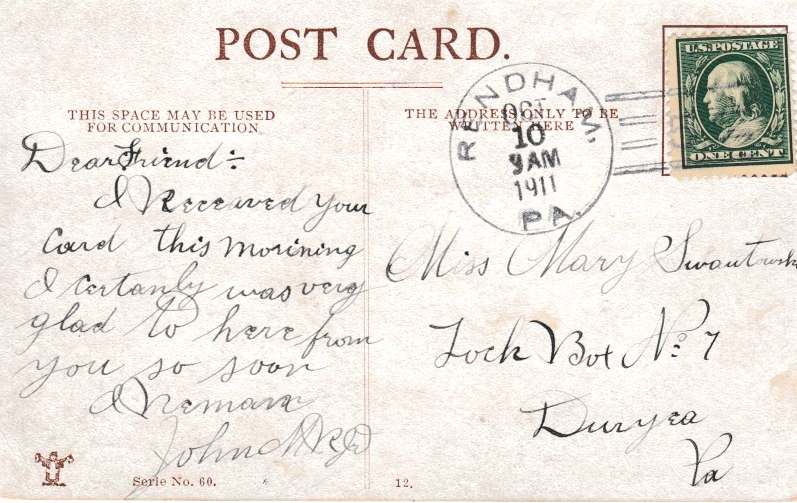 POST CARD.
THIS SPACE MAY BE USED
FOR COMMUNICATION
THE ADDRESS ONLY TO BE
WRITTEN HERE
RENDHAM,
OCT
10
9 AM
1911
PA.
U.S. POSTAGE
ONE CENT
Dear Friend:
I Receaved your
Card this morining
I certanly was very
glad to here from
you so soon
I Remain
John
Miss Mary Swantowski
Lock Box No. 7
Duryea
Pa
Serie No. 60.
12.